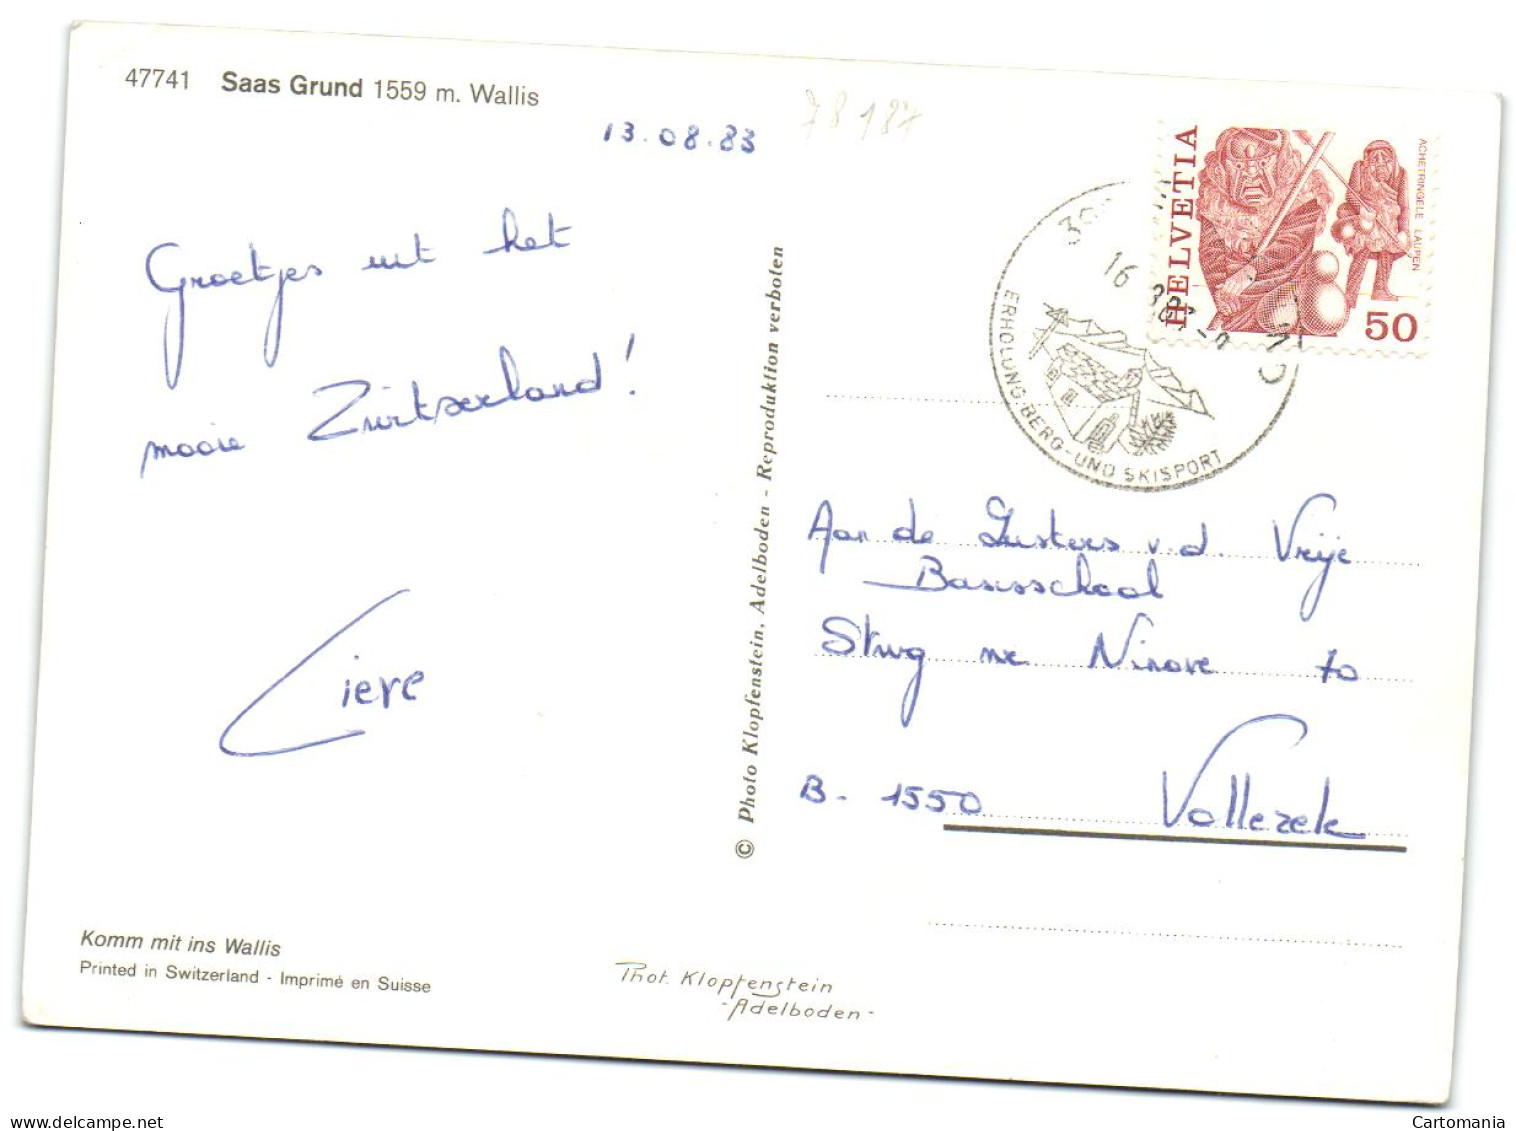 47741 Saas Grund 1559 m. Wallis
13.08.83
78 187
Groetjes uit het
mooie Zwitserland!
Liere
HELVETIA
ACHETRINGELE LAUPEN
50
16
ERHOLUNG BERG- UND SKISPORT
© Photo Klopfenstein, Adelboden - Reproduktion verboten
Aan de Zusters v.d. Vrije
Basisschool
Stwg nr Ninove 70
B. 1550 Vollezele
Komm mit ins Wallis
Printed in Switzerland - Imprimé en Suisse
Phot. Klopfenstein
-Adelboden-
www.delcampe.net
Cartomania